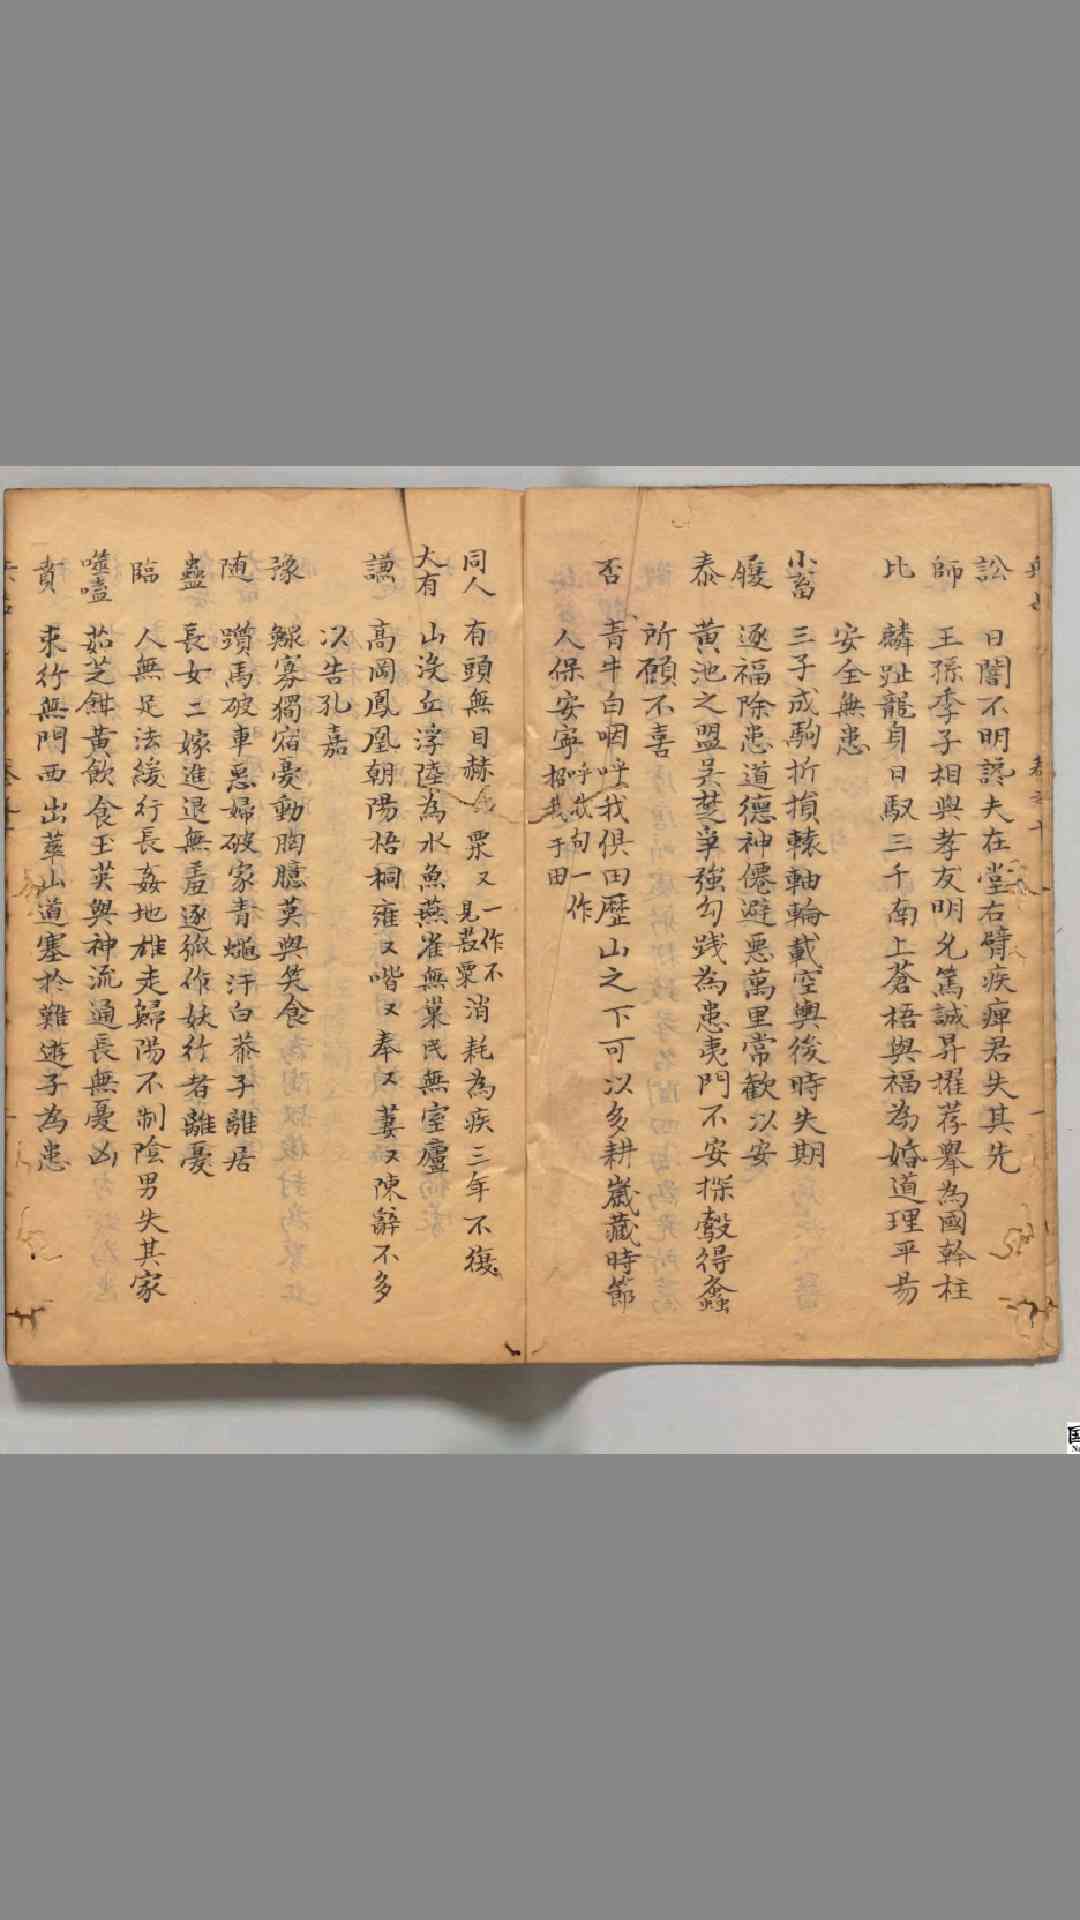 訟 日闇不明讒夫在堂右臂疾痺君失其先
師 王孫季子相與孝友明允篤誠昇擢荐舉為國幹柱
比 麟趾龍身日馭三千南上蒼梧與福為婚道理平易
安全無患
小畜 三子成駒折損轅軸輪載空輿後時失期
履 逐福除患道德神僊避惡萬里常歡以安
泰 黃池之盟吳楚爭強勾踐為患夷門不安探鷇得螽
所願不喜
否 青牛白咽呼我俱田歷山之下可以多耕歲藏時節
人保安寧 呼我句一作招我于田
同人 有頭無目赫 粟又一作不見菽粟消耗為疾三年不復
大有 山沒丘浮陸為水魚燕雀無巢民無室廬
謙 高岡鳳凰朝陽梧桐雍又喈又奉又萋又陳辭不多
以告孔嘉
豫 鰥寡獨宿憂動胸臆莫與笑食
随 躓馬破車惡婦破家青蠅汙白恭子離居
蠱 長女三嫁進退無羞逐狐作妖行者離憂
臨 人無足法緩行長姦地雄走歸陽不制陰男失其家
噬嗑 茹芝餌黃飲食玉英與神流通長無憂凶
賁 求行無門西出華山道塞於難遊子為患